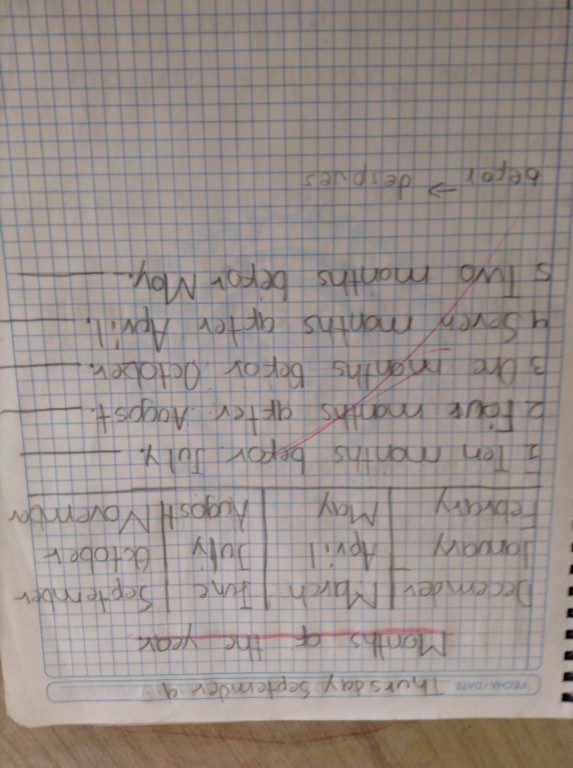 FECHA/DATE Thursday September 9
Months of the year
December March June September
January April July October
February May Augost November
1 Ten months befor July.
2 Four months after Augost.
3 One months befor October.
4 Seven months after April.
5 Two months befor May.
befor → despues